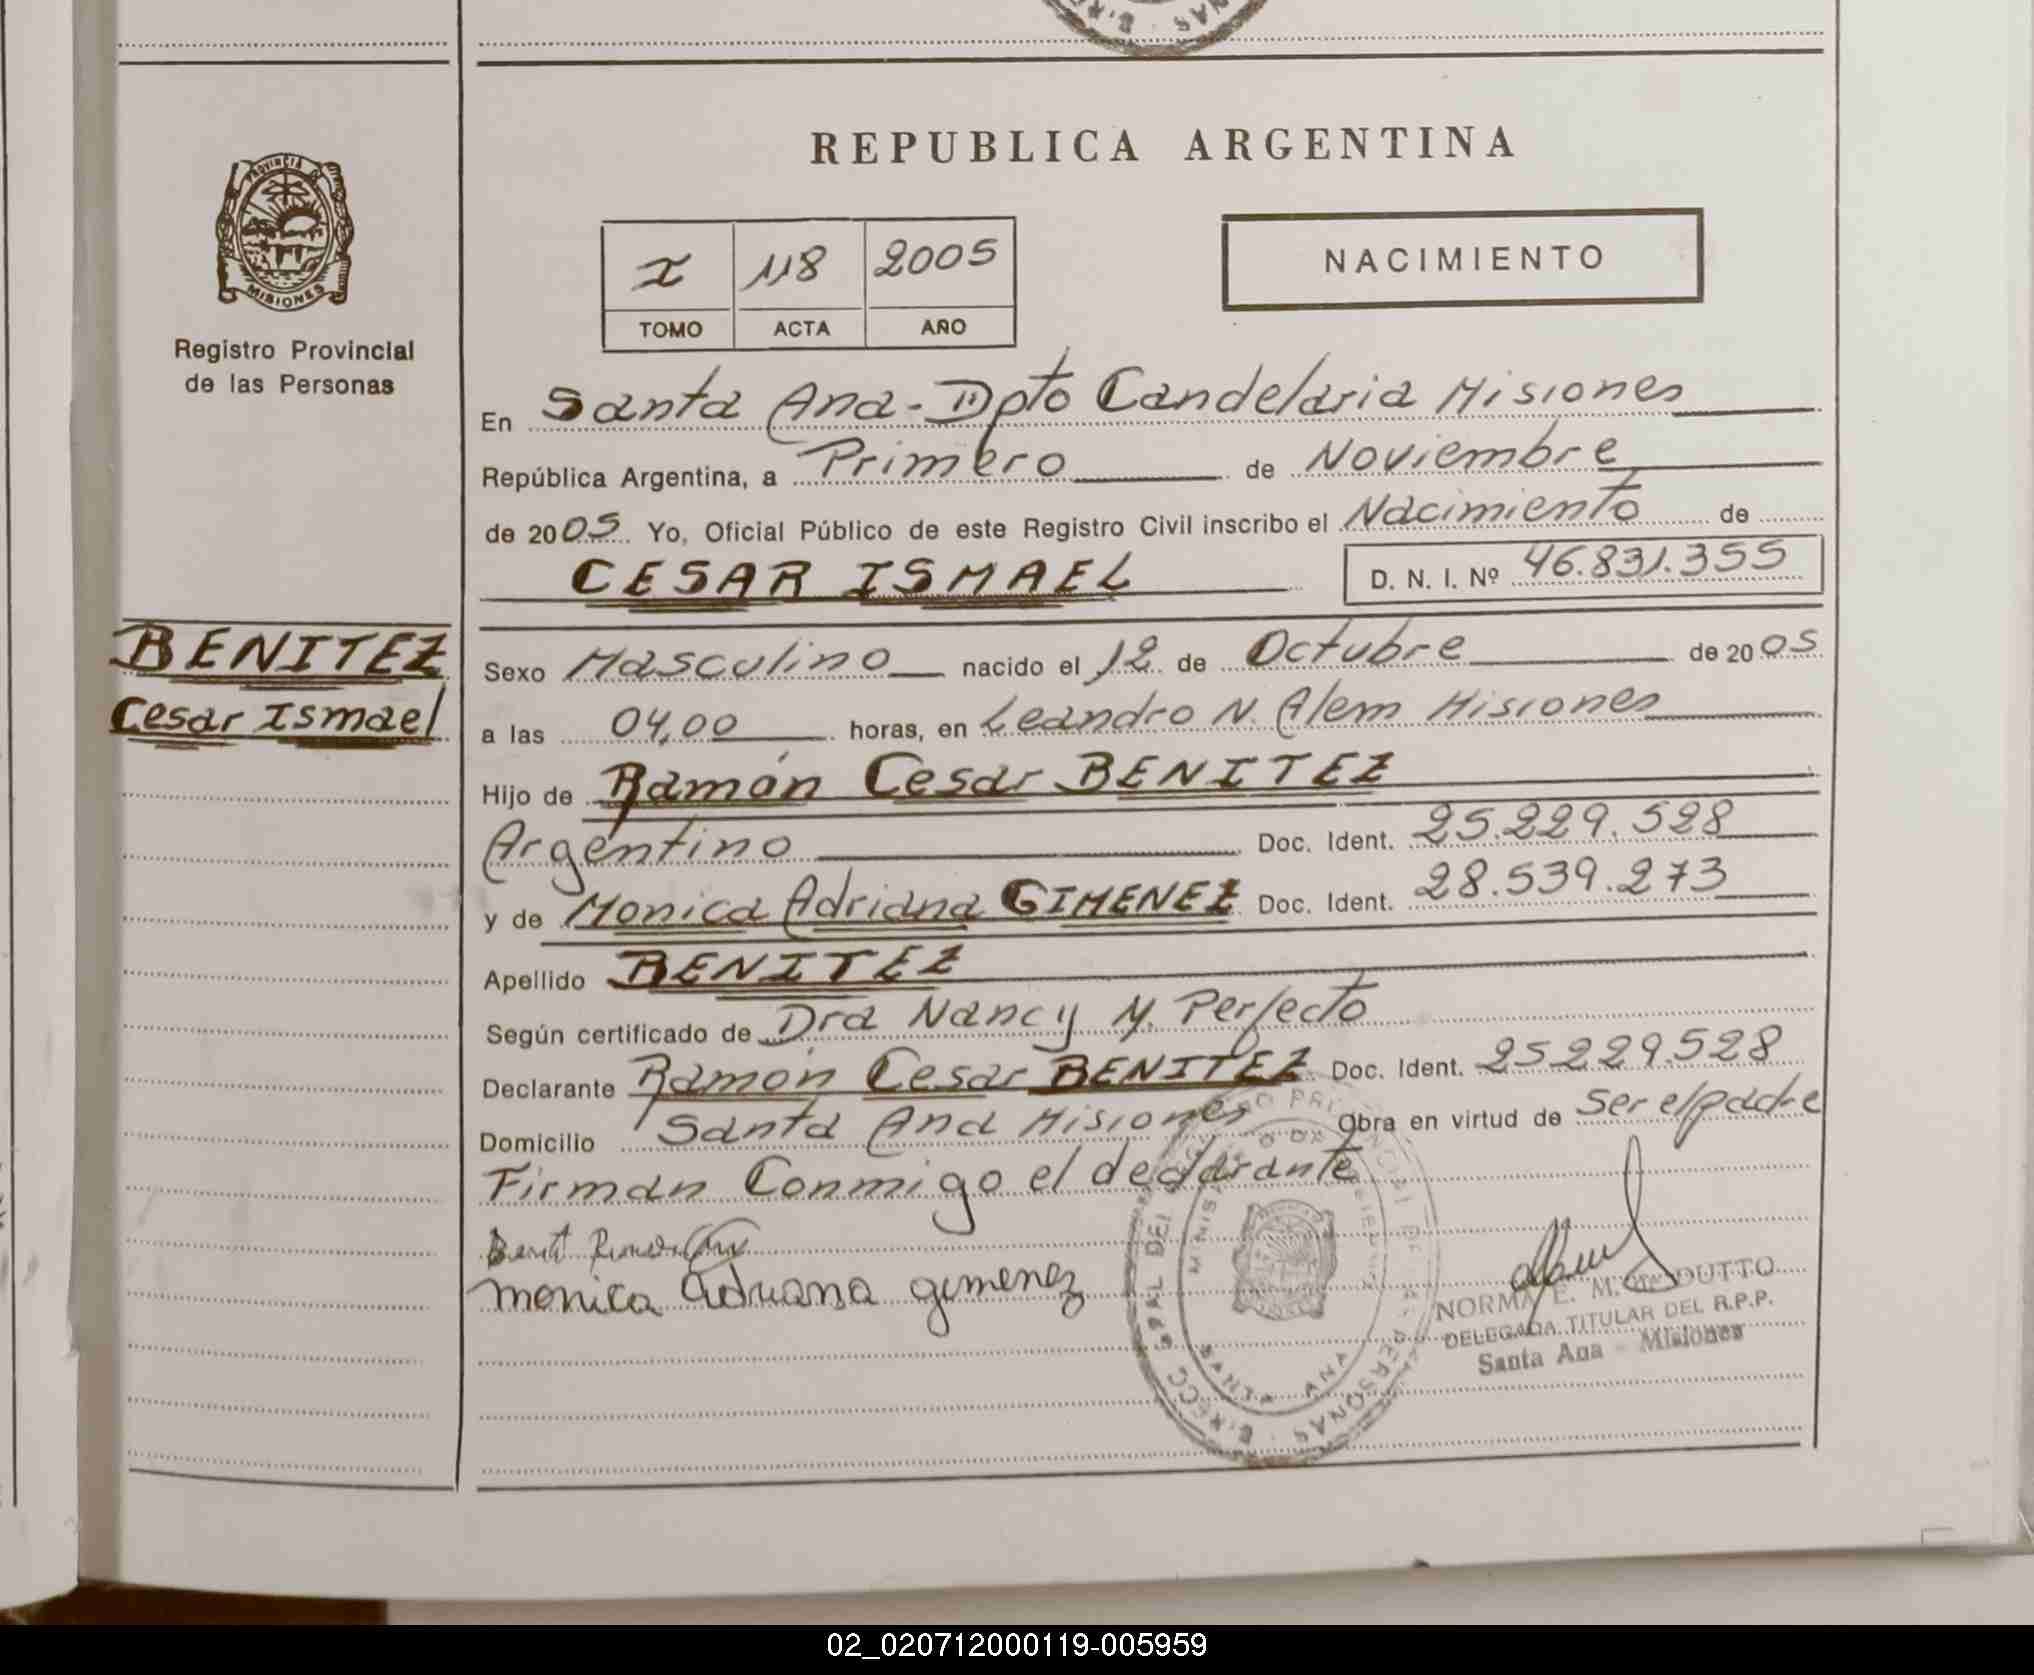 REPUBLICA ARGENTINA
PROVINCIA DE
MISIONES
Registro Provincial
de las Personas
I 118 2005
TOMO ACTA AÑO
NACIMIENTO
En Santa Ana - Dpto Candelaria Misiones
República Argentina, a Primero de Noviembre
de 2005 Yo, Oficial Público de este Registro Civil inscribo el Nacimiento de
CESAR ISMAEL D. N. I. Nº 46.831.355
BENITEZ
Cesar Ismael
Sexo Masculino nacido el 12 de Octubre de 2005
a las 04,00 horas, en Leandro N. Alem Misiones
Hijo de Ramón Cesar BENITEZ
Argentino Doc. Ident. 25.229.528
y de Monica Adriana GIMENEZ Doc. Ident. 28.539.273
Apellido BENITEZ
Según certificado de Dra Nancy M. Perfecto
Declarante Ramón Cesar BENITEZ Doc. Ident. 25229.528
Domicilio Santa Ana Misiones Obra en virtud de Ser el padre
Firman Conmigo el declarante
monica adriana gimenez
NORMA E. M.
DELEGADA TITULAR DEL R.P.P.
Santa Ana - Misiones
SANTA ANA
02_020712000119-005959